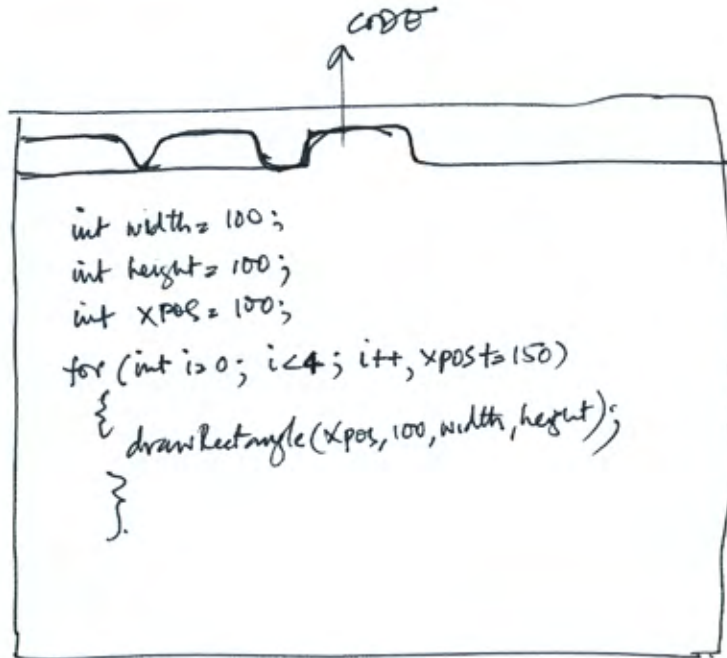 CODE
int width = 100;
int height = 100;
int xpos = 100;
for (int i=0; i<4; i++, xpos+=150)
{
drawRectangle(xpos,100,width,height);
}